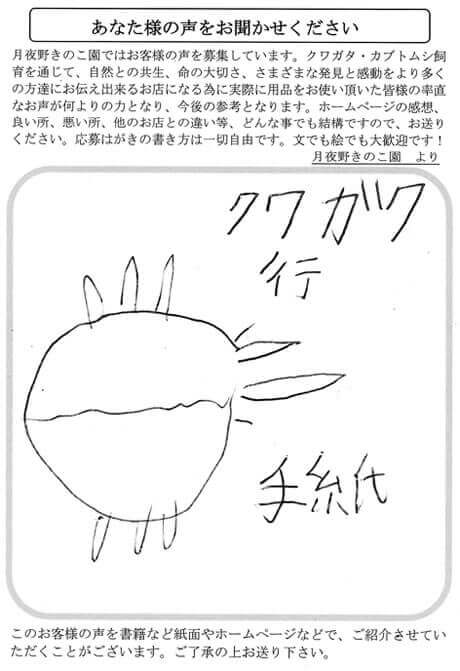 あなた様の声をお聞かせください
月夜野きのこ園ではお客様の声を募集しています。クワガタ・カブトムシ飼
育を通じて、自然との共生、命の大切さ、さまざまな発見と感動をより多く
の方達にお伝え出来るお店になる為に実際に用品をお使い頂いた皆様の率直
なお声が何よりの力となり、今後の参考となります。ホームページの感想、
良い所、悪い所、他のお店との違い等、どんな事でも結構ですので、お送り
ください。応募はがきの書き方は一切自由です。文でも絵でも大歓迎です！
月夜野きのこ園　より
クワガワ
行
手紙
このお客様の声を書籍など紙面やホームページなどで、ご紹介させてい
ただくことがございます。ご了承の上お送り下さい。